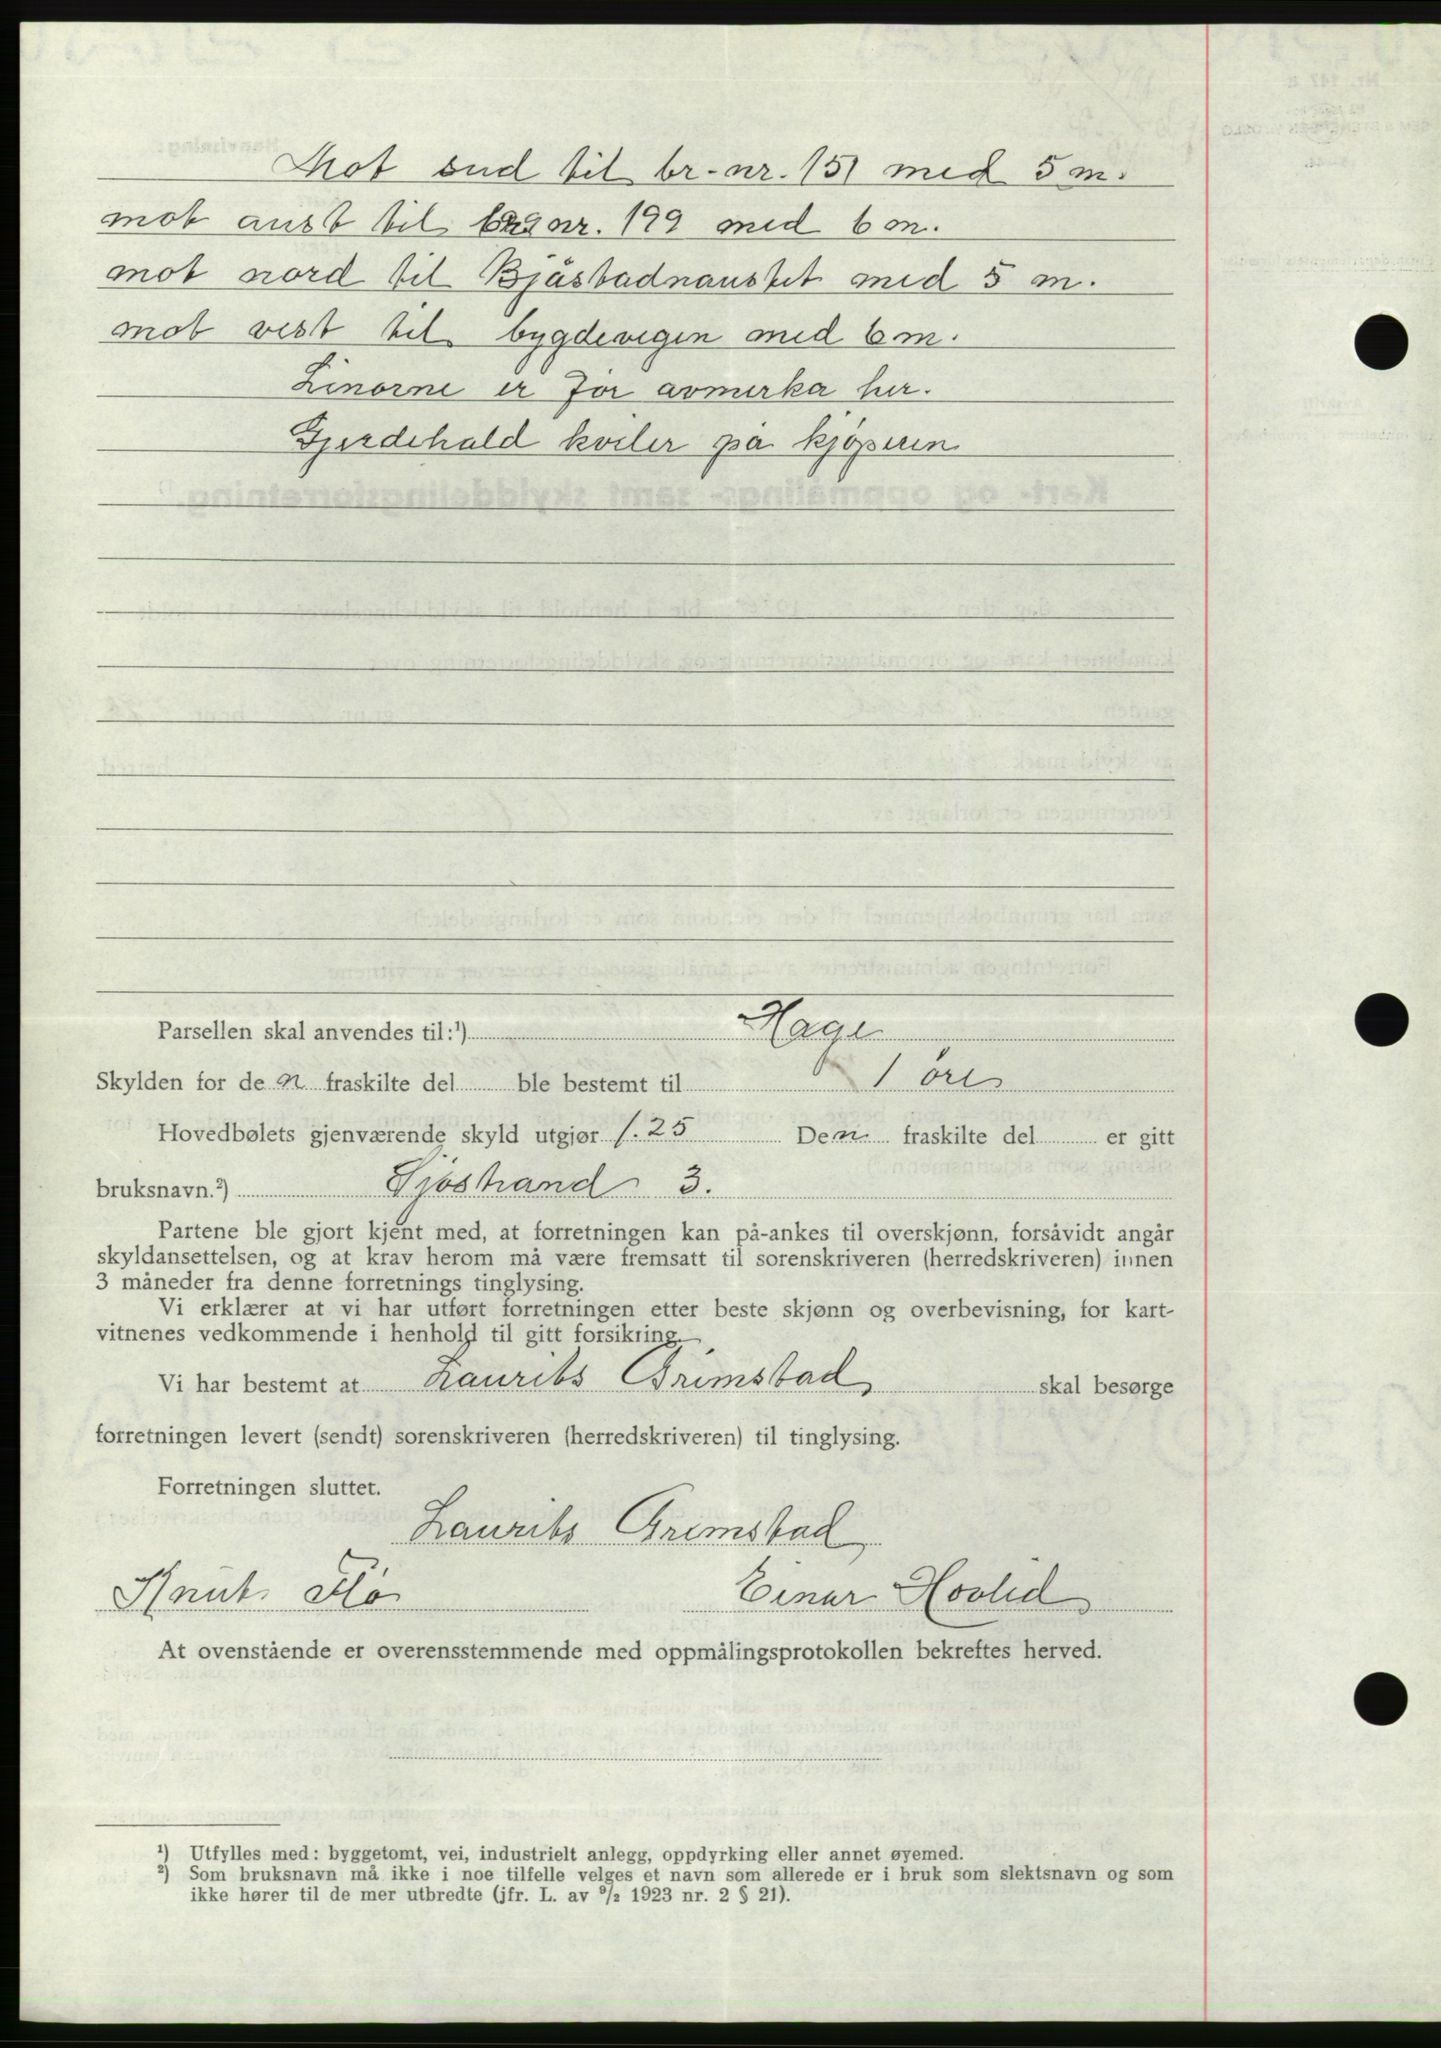 Mot sud til br-nr. 151 med 5 m.
mot aust til nr. 199 med 6 m.
mot nord til Bjåstadnaustet med 5 m.
mot vest til bygdevegen med 6 m.
Linorne er for avmerka her.
Gjerdehald kviler på kjøperen
Parsellen skal anvendes til:¹) Hage
Skylden for den fraskilte del ble bestemt til 1 øre
Hovedbølets gjenværende skyld utgjør 1.25 Den fraskilte del er gitt
bruksnavn.²) Sjøstrand 3.
Partene ble gjort kjent med, at forretningen kan på-ankes til overskjønn, forsåvidt angår
skyldansettelsen, og at krav herom må være fremsatt til sorenskriveren (herredskriveren) innen
3 måneder fra denne forretnings tinglysing.
Vi erklærer at vi har utført forretningen etter beste skjønn og overbevisning, for kart-
vitnenes vedkommende i henhold til gitt forsikring.
Vi har bestemt at Laurits Grimstad skal besørge
forretningen levert (sendt) sorenskriveren (herredskriveren) til tinglysing.
Forretningen sluttet.
Laurits Grimstad
Knut Flø Einar Hovlid
At ovenstående er overensstemmende med oppmålingsprotokollen bekreftes herved.
¹) Utfylles med: byggetomt, vei, industrielt anlegg, oppdyrking eller annet øyemed.
²) Som bruksnavn må ikke i noe tilfelle velges et navn som allerede er i bruk som slektsnavn og som
ikke hører til de mer utbredte (jfr. L. av ⁹/₂ 1923 nr. 2 § 21).